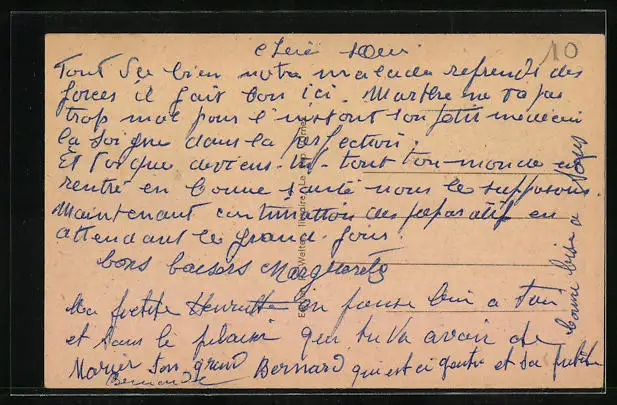 Chère sœur
10
Tout va bien notre malade reprend des
forces il fait bon ici. Marthe ne va pas
trop mal pour l'instant son petit médecin
la soigne dans la perfection.
Et toi que deviens-tu. tout ton monde est
rentré en bonne santé nous le supposons.
Maintenant continuation des préparatifs en
attendant le grand jour.
bons baisers Marguerite
Ma petite Henriette on pense bien a toi
et dans le plaisir que tu va avoir de
Marier ton grand Bernard qui est si gentil et sa petite
Bernande
bonne bise a
Walter